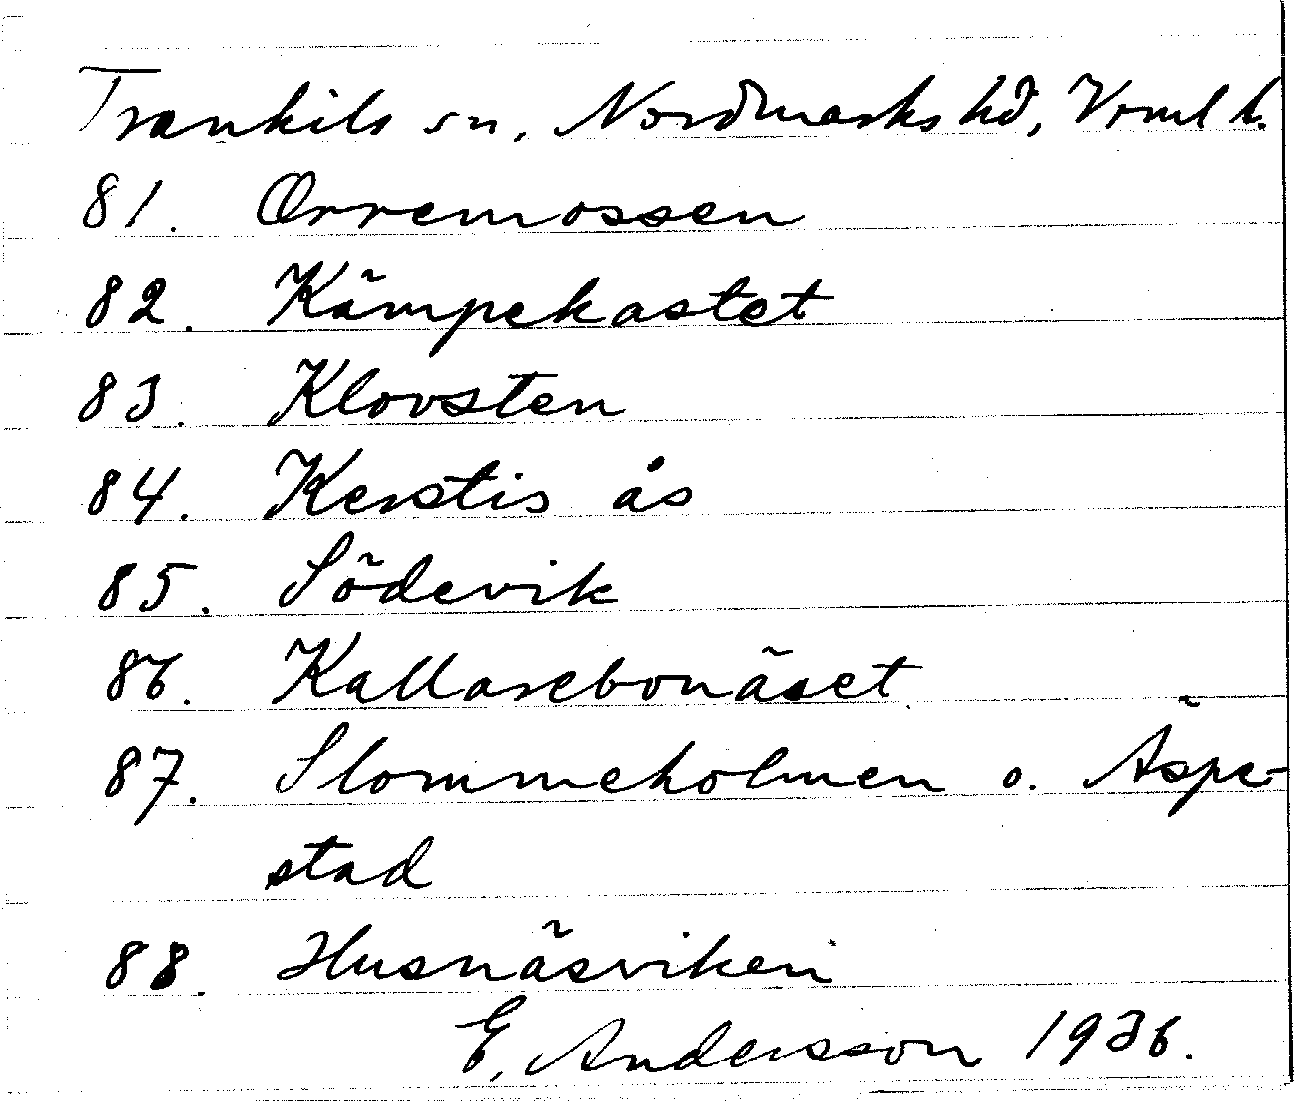 Trankils sn, Nordmarks hd, Vrml l.
81. Orremossen
82. Kämpekastet
83. Klovsten
84. Kerstis ås
85. Södevik
86. Kallarebonäset
87. Slommeholmen o. Äspe-
stad
88. Husnäsviken
E. Andersson 1936.